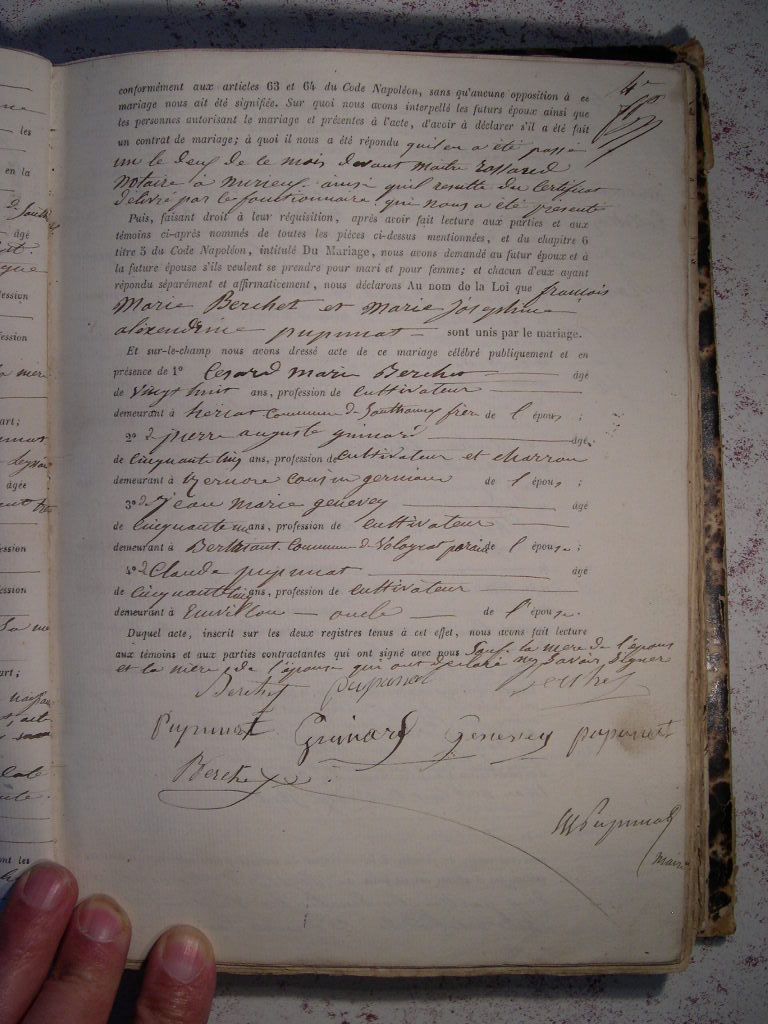 conformément aux articles 63 et 64 du Code Napoléon, sans qu'aucune opposition à ce
mariage nous ait été signifiée. Sur quoi nous avons interpellé les futurs époux ainsi que
les personnes autorisant le mariage et présentes à l'acte, d'avoir à déclarer s'il a été fait
un contrat de mariage; à quoi il nous a été répondu qu'il en a été passé
un le deux de ce mois devant maitre rossand
notaire à nurieux. ainsi qu'il resulte du Certificat
delivré par le fonctionnaire qui nous a été présenté
Puis, faisant droit à leur réquisition, après avoir fait lecture aux parties et aux
témoins ci-après nommés de toutes les pièces ci-dessus mentionnées, et du chapitre 6
titre 5 du Code Napoléon, intitulé Du Mariage, nous avons demandé au futur époux et à
la future épouse s'ils veulent se prendre pour mari et pour femme; et chacun d'eux ayant
répondu séparément et affirmativement, nous déclarons Au nom de la Loi que françois
Marie Berchet et Marie Joséphine
alexendrine pupunat sont unis par le mariage.
Et sur-le-champ nous avons dressé acte de ce mariage célébré publiquement et en
présence de 1° Cesard marie Berchet âgé
de vingt huit ans, profession de cultivateur
demeurant à heriat Commune de frère de l'époux ;
2° d pierre auguste guinard âgé
de cinquante cinq ans, profession de cultivateur et charron
demeurant à izernore cousin germain de l'époux ;
3° d Jean marie genevey âgé
de cinquante ans, profession de cultivateur
demeurant à Berthiant Commune de Volognat parain de l'épouse ;
4° d Claude pupunat âgé
de cinquante cinq ans, profession de cultivateur
demeurant à oncle de l'épouse.
Duquel acte, inscrit sur les deux registres tenus à cet effet, nous avons fait lecture
aux témoins et aux parties contractantes qui ont signé avec nous Sauf la mere de l'époux
et la mere de l'épouse qui ont déclaré ny Savoir Signer
Berchet pupunat Berchet
Pupunat Guinard Genevey pupunat
Berchet
Pupunat
maire